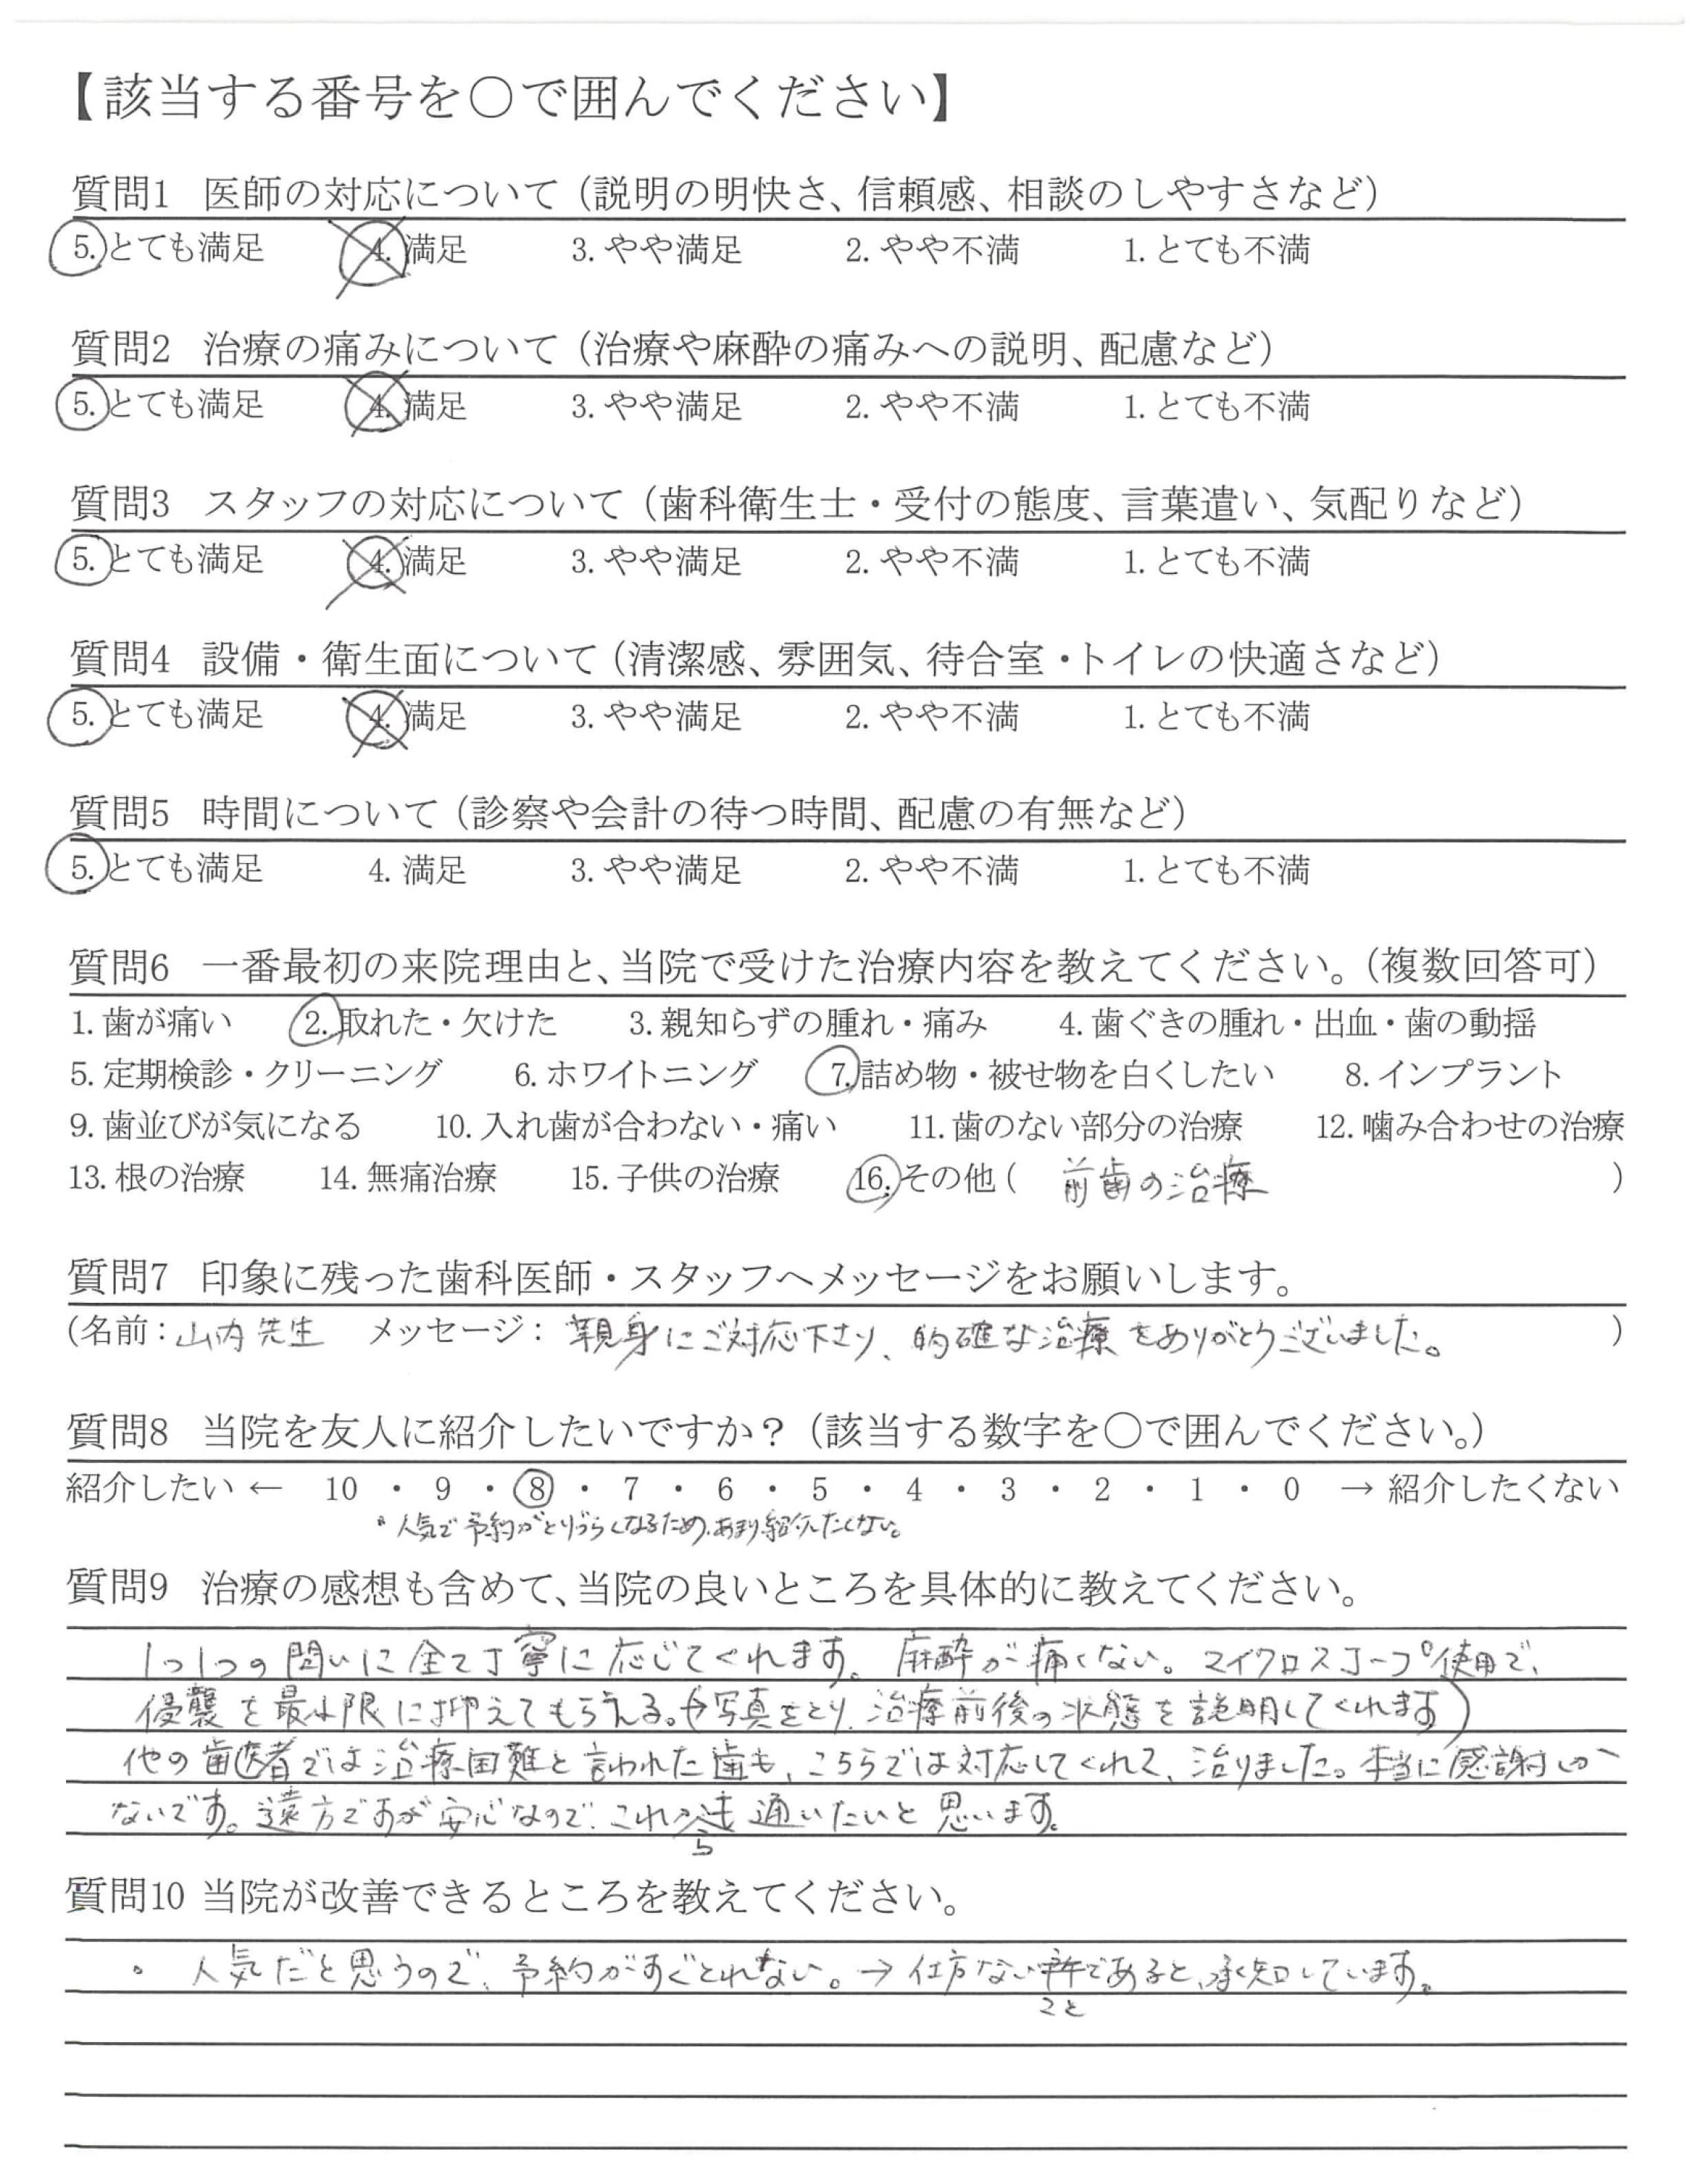 【該当する番号を〇で囲んでください】
質問1 医師の対応について（説明の明快さ、信頼感、相談のしやすさなど）
5. とても満足 4. 満足 3. やや満足 2. やや不満 1. とても不満
質問2 治療の痛みについて（治療や麻酔の痛みへの説明、配慮など）
5. とても満足 4. 満足 3. やや満足 2. やや不満 1. とても不満
質問3 スタッフの対応について（歯科衛生士・受付の態度、言葉遣い、気配りなど）
5. とても満足 4. 満足 3. やや満足 2. やや不満 1. とても不満
質問4 設備・衛生面について（清潔感、雰囲気、待合室・トイレの快適さなど）
5. とても満足 4. 満足 3. やや満足 2. やや不満 1. とても不満
質問5 時間について（診察や会計の待つ時間、配慮の有無など）
5. とても満足 4. 満足 3. やや満足 2. やや不満 1. とても不満
質問6 一番最初の来院理由と、当院で受けた治療内容を教えてください。（複数回答可）
1. 歯が痛い 2. 取れた・欠けた 3. 親知らずの腫れ・痛み 4. 歯ぐきの腫れ・出血・歯の動揺
5. 定期検診・クリーニング 6. ホワイトニング 7. 詰め物・被せ物を白くしたい 8. インプラント
9. 歯並びが気になる 10. 入れ歯が合わない・痛い 11. 歯のない部分の治療 12. 噛み合わせの治療
13. 根の治療 14. 無痛治療 15. 子供の治療 16. その他（ 前歯の治療 ）
質問7 印象に残った歯科医師・スタッフへメッセージをお願いします。
（名前：山内先生 メッセージ：親身にご対応下さり、的確な治療をありがとうございました。）
質問8 当院を友人に紹介したいですか？（該当する数字を〇で囲んでください。）
紹介したい ← 10 ・ 9 ・ 8 ・ 7 ・ 6 ・ 5 ・ 4 ・ 3 ・ 2 ・ 1 ・ 0 → 紹介したくない
・人気で予約がとりづらくなるため、あまり紹介したくない。
質問9 治療の感想も含めて、当院の良いところを具体的に教えてください。
1つ1つの問いに全て丁寧に応じてくれます。麻酔が痛くない。マイクロスコープ使用で、
侵襲を最小限に抑えてもらえる。写真をとり、治療前後の状態を説明してくれます）
他の歯医者では治療困難と言われた歯も、こちらでは対応してくれて、治りました。本当に感謝しか
ないです。遠方ですが安心なので、これからも通いたいと思います。
質問10 当院が改善できるところを教えてください。
。人気だと思うので、予約がすぐとれない。→仕方ないことであると、承知しています。